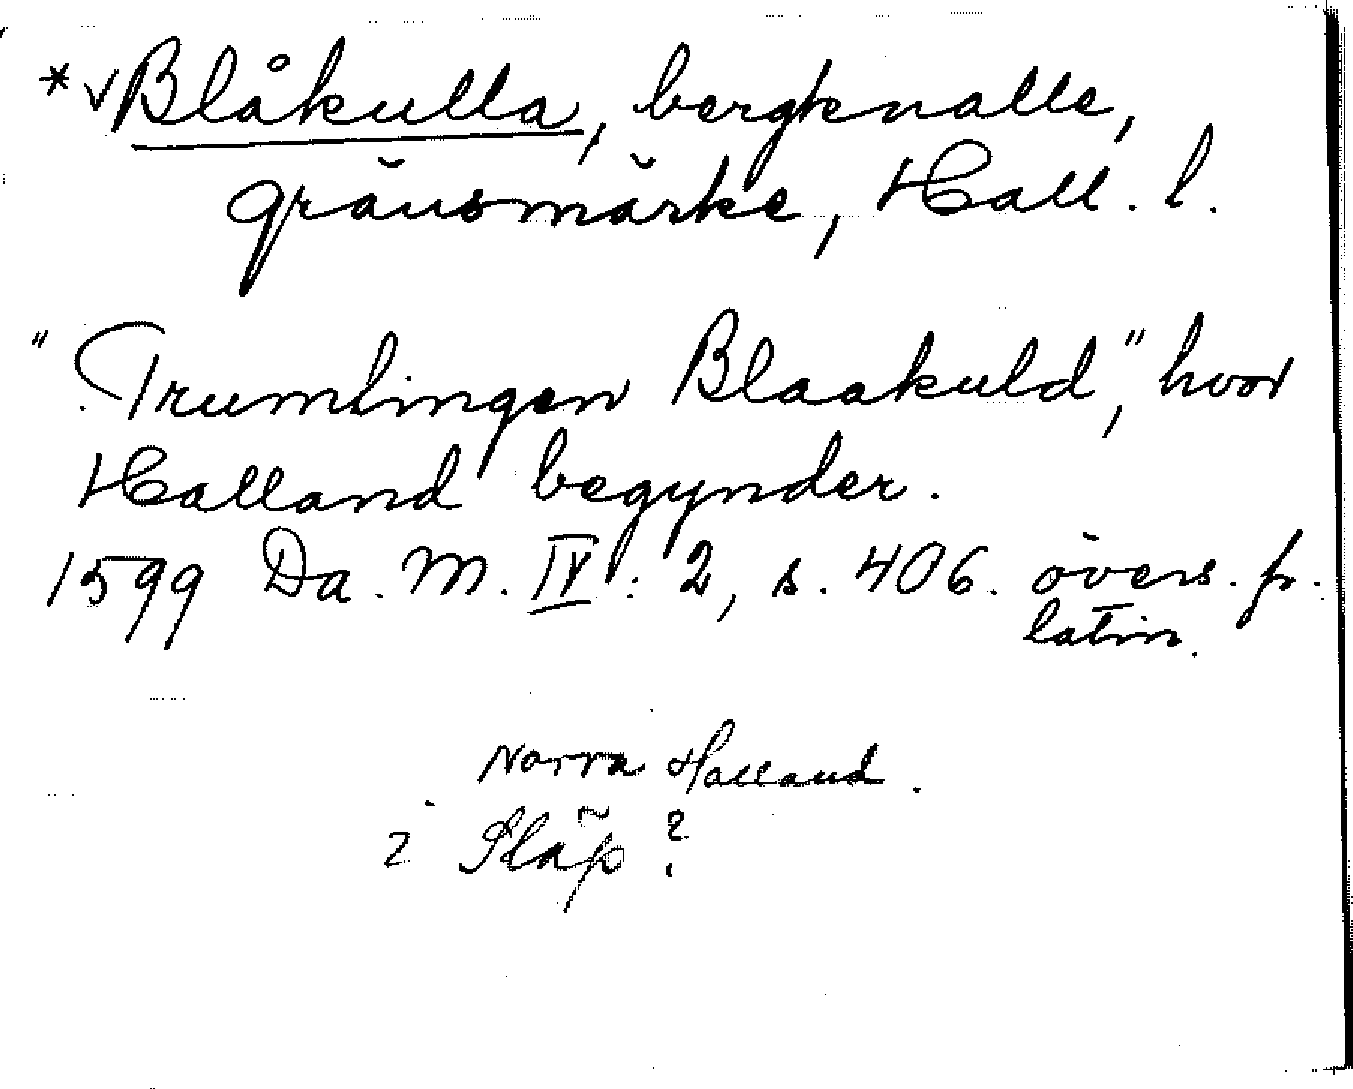 * √ Blåkulla, bergknalle,
gränsmärke, Hall. l.
"Trumlingen Blaakuld", hvor
Halland begynder.
1599 Da. M. IV: 2, s. 406. övers. fr.
latin.
Norra Halland.
? Släp?